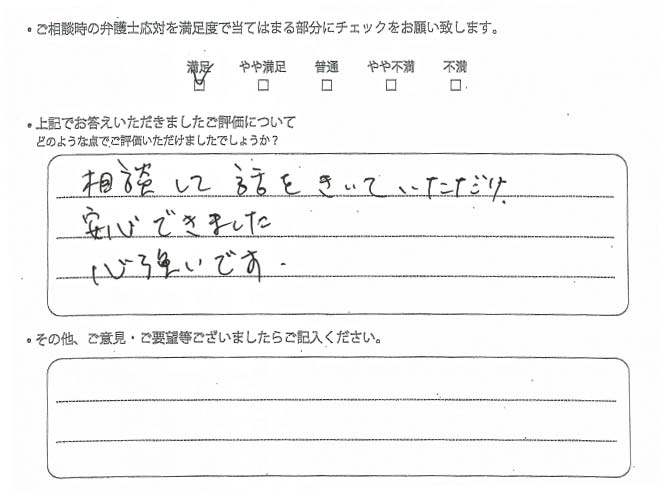 ・ご相談時の弁護士応対を満足度で当てはまる部分にチェックをお願い致します。
満足 やや満足 普通 やや不満 不満
□ □ □ □ □
・上記でお答えいただきましたご評価について
どのような点でご評価いただけましたでしょうか？
相談して話をきいていただけ
安心できました
心強いです.
・その他、ご意見・ご要望等ございましたらご記入ください。